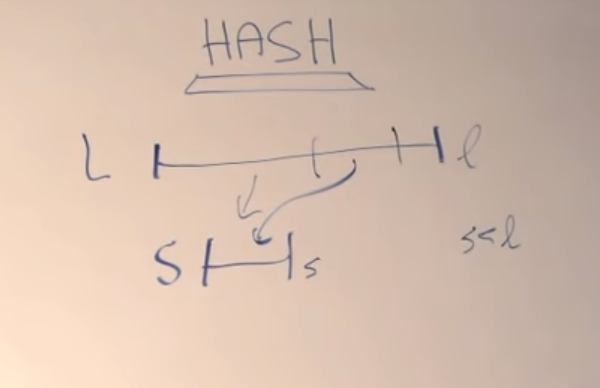 HASH
L l
S s
s<l